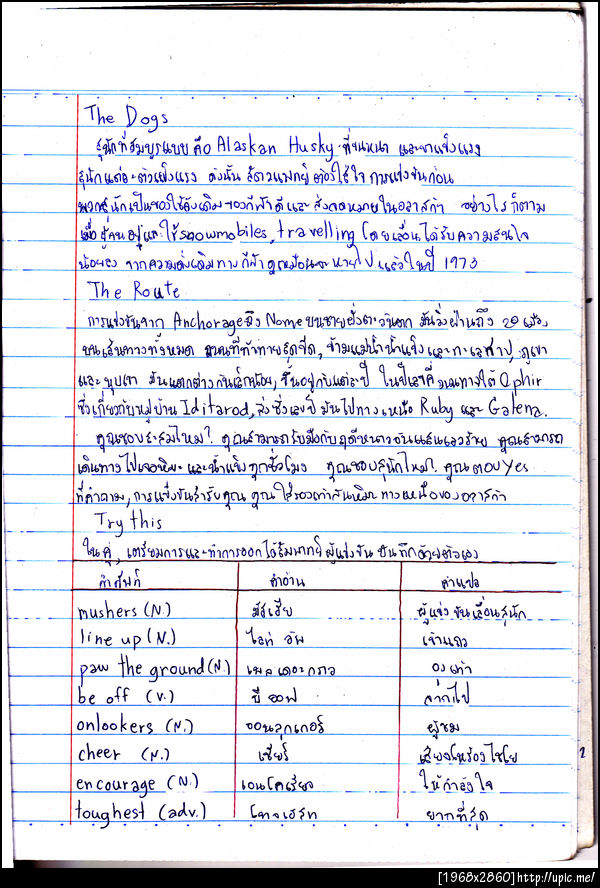 The Dogs
สุนัขที่สมบูรแบบ คือ Alaskan Husky ที่ขนหนา และขาแข็งแรง
สุนัขแต่ละตัวแข็งแรง ดังนั้น สัตวแพทย์ ต้องใส่ใจ การแข่งขันก่อน
พวกสุนัขเป็นของใช้ดั้งเดิมของกีฬา และ ส่งจดหมายในอลาสก้า อย่างไรก็ตาม
เมื่อ ผู้คน และ ใช้ snowmobiles, travelling โดยเลื่อน ได้รับความสนใจ
น้อยลง จากความดั้งเดิมทางกีฬา ดูเหมือนจะหายไป แล้วในปี 1973
The Route
การแข่งขันจาก Anchorage ถึง Nome บนชายฝั่งตะวันตก มันวิ่งผ่านถึง 20 เมือง
บนเส้นทางทั้งหมด ถนนที่ท้าทายสุดขีด, ข้ามแม่น้ำน้ำแข็ง และทะเลสาป, ภูเขา
และ หุบเขา มันแตกต่างกันเล็กน้อย, ขึ้นอยู่กับแต่ละปี ในปีเลขคี่ ทางใต้ Ophir
ซึ่งเกี่ยวกับหมู่บ้าน Iditarod, ซึ่งเลขปี มันไปทางเหนือ Ruby และ Galena.
คุณชอบหิมะไหม?. คุณสามารถรับมือกับ ฤดูหนาวอันแสนเลวร้าย คุณสามารถ
เดินทางไปเจอหิมะ และน้ำแข็ง ทุกชั่วโมง คุณชอบสุนัขไหม?. คุณตอบ Yes
ที่คำถาม, การแข่งขันสำรับคุณ คุณใส่รองเท้าหิมะ ทางเหนือของอลาสก้า
Try this
ในคู่, เตรียมการและทำการออกไปสัมภาทย์ ผู้แข่งขัน บันทึกด้วยตัวเอง
คำศัพท์ คำอ่าน คำแปล
mushers (N.) มัชเชีย ผู้แข่งขันเลื่อนสุนัข
line up (N.) ไลท์ อัพ เข้าแถว
paw the ground (N.) เพลเดอะกราว อุ้งเท้า
be off (v.) บี ออฟ ลากไป
onlookers (N.) ออนลุกเกอร์ ผู้ชม
cheer (N.) เชียร์ เสียงโห่ร้องไชโย
encourage (N.) เอนโคเรียจ ให้กำลังใจ
toughest (adv.) โทจเฮสท ยากที่สุด
2
[1968x2860]http://upic.me/